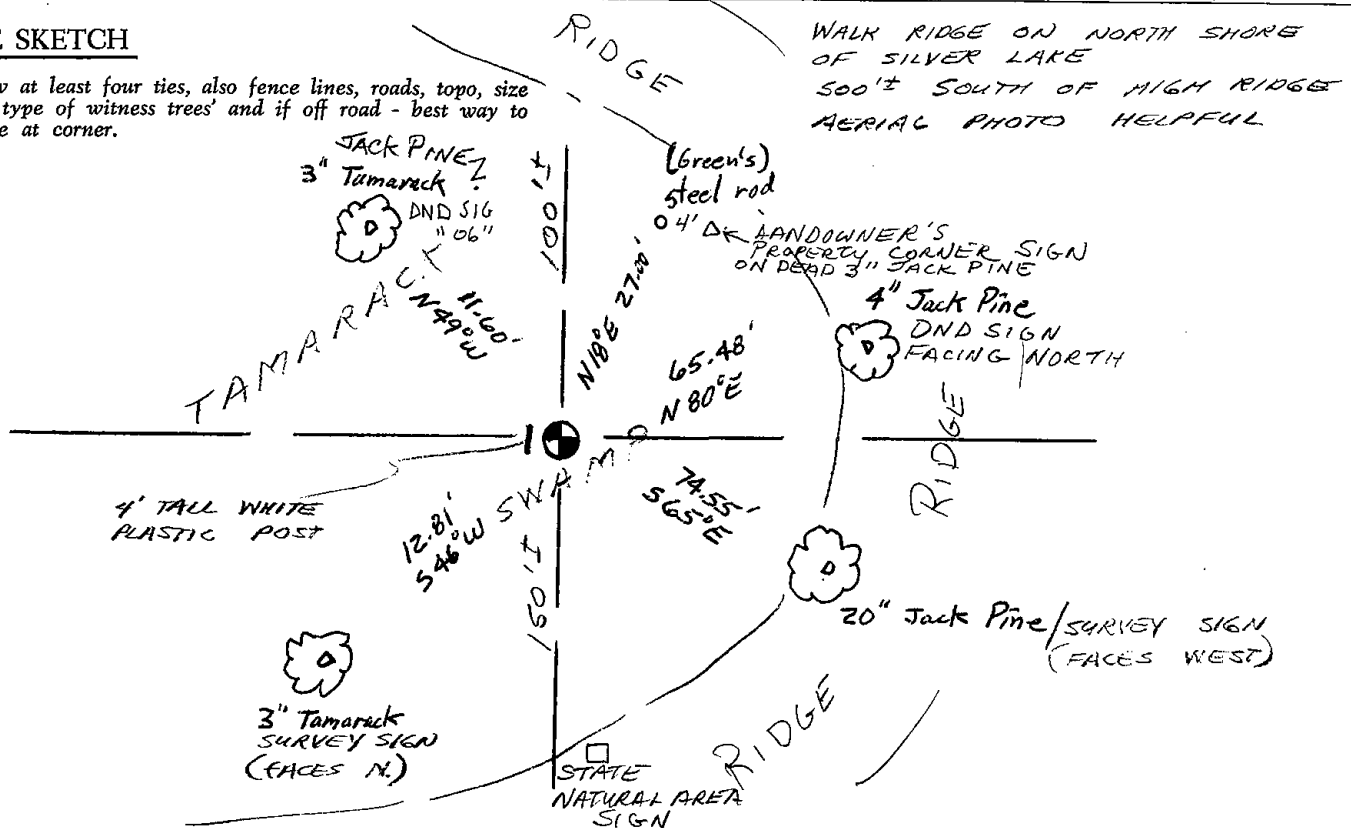 SKETCH
at least four ties, also fence lines, roads, topo, size
type of witness trees' and if off road - best way to
at corner.
RIDGE
WALK RIDGE ON NORTH SHORE
OF SILVER LAKE
500'± SOUTH OF HIGH RIDGE
AERIAL PHOTO HELPFUL
JACK PINE?
3" Tamarack
DND SIG
"06"
100'±
(Green's)
steel rod
4'
LANDOWNER'S
PROPERTY CORNER SIGN
ON DEAD 3" JACK PINE
4" Jack Pine
DND SIGN
FACING NORTH
TAMARACK
11.60'
N49°W
N18°E 27.00'
65.48'
N80°E
RIDGE
SWAMP
4' TALL WHITE
PLASTIC POST
12.81'
S46°W
150'±
74.55'
S65°E
20" Jack Pine/SURVEY SIGN
(FACES WEST)
3" Tamarack
SURVEY SIGN
(FACES N.)
RIDGE
STATE
NATURAL AREA
SIGN